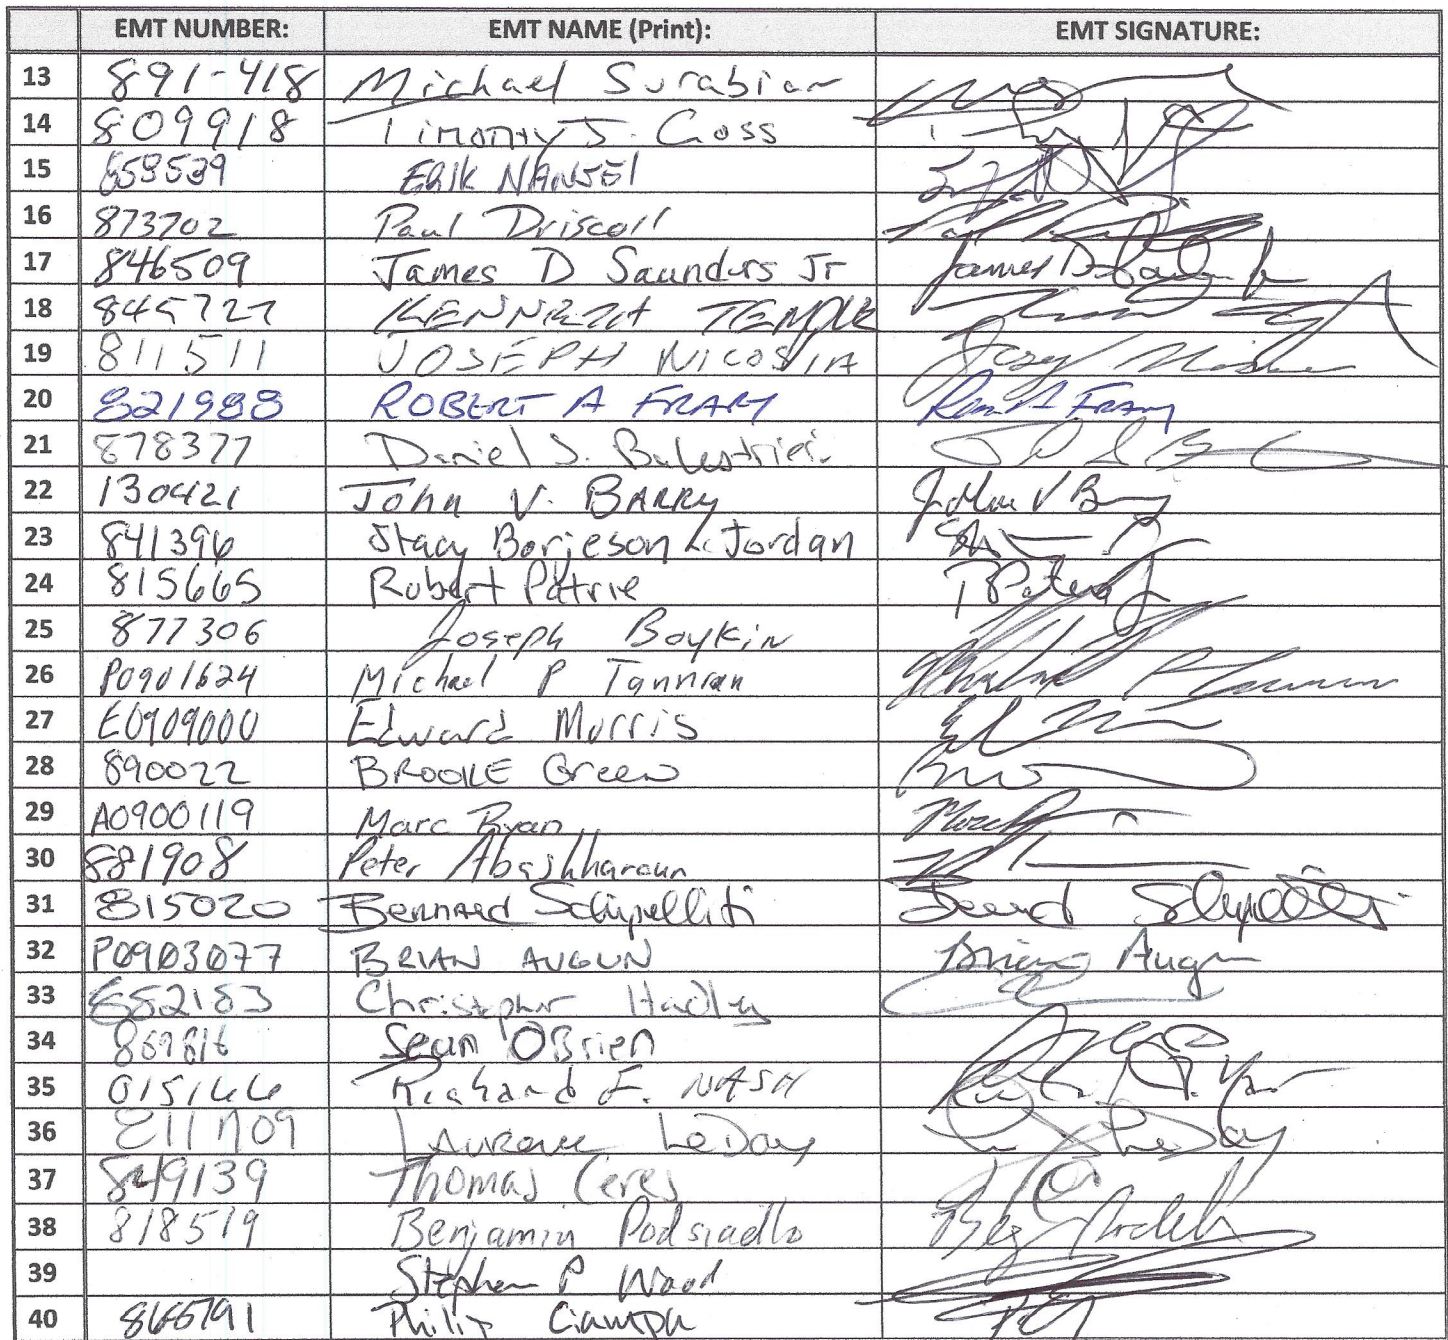 EMT NUMBER: EMT NAME (Print): EMT SIGNATURE:
13 891-418 Michael Surabian
14 809918 Timothy J. Goss
15 859539 ERIK NANSEL
16 873702 Paul Driscoll
17 846509 James D Saunders Jr James D
18 845727 KENNETH TEMPLE
19 811511 JOSEPH NICOSIA
20 821988 ROBERT A FRARY FRARY
21 878377 Daniel J. Balestrieri
22 130421 John V. BARRY
23 841396 Stacy Borjeson Jordan
24 815665 Robert Petrie
25 877306 Joseph Boykin
26 P0901624 Michael P Tannian
27 E0909000 Edward Morris
28 890022 BROOKE Green
29 A0900119 Marc Ryan
30 881908 Peter Abashharoun
31 815020 Bernard Schipelliti
32 P0903077 BRIAN AUGUN Brian Augun
33 852183 Christopher Hadley
34 869816 Sean OBrien
35 Richard F. NASH
36 Laurence LeDay LeDay
37 849139 Thomas Ceres
38 818519 Benjamin Podsiadlo
39 Stephen P Wood
40 Philip Ciampa